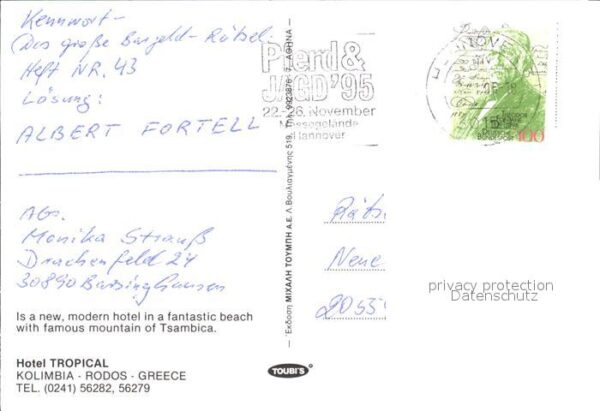 Kennwort -
Das große Bargeld-Rätsel
Heft NR. 43
Lösung:
ALBERT FORTELL
Abs.
Monika Strauß
Drachenfeld 24
30890 Barsinghausen
Is a new, modern hotel in a fantastic beach
with famous mountain of Tsambica.
Hotel TROPICAL
KOLIMBIA - RODOS - GREECE
TEL. (0241) 56282, 56279
Έκδοση ΜΙΧΑΛΗ ΤΟΥΜΠΗ Α.Ε. Λ. Βουλιαγμένης 519, Τηλ. 9923876 - 7 - ΑΘΗΝΑ
TOUBI'S
Pferd &
JAGD '95
22.-26. November
Messegelände
Hannover
100
Räts
Neue
20539
privacy protection
Datenschutz